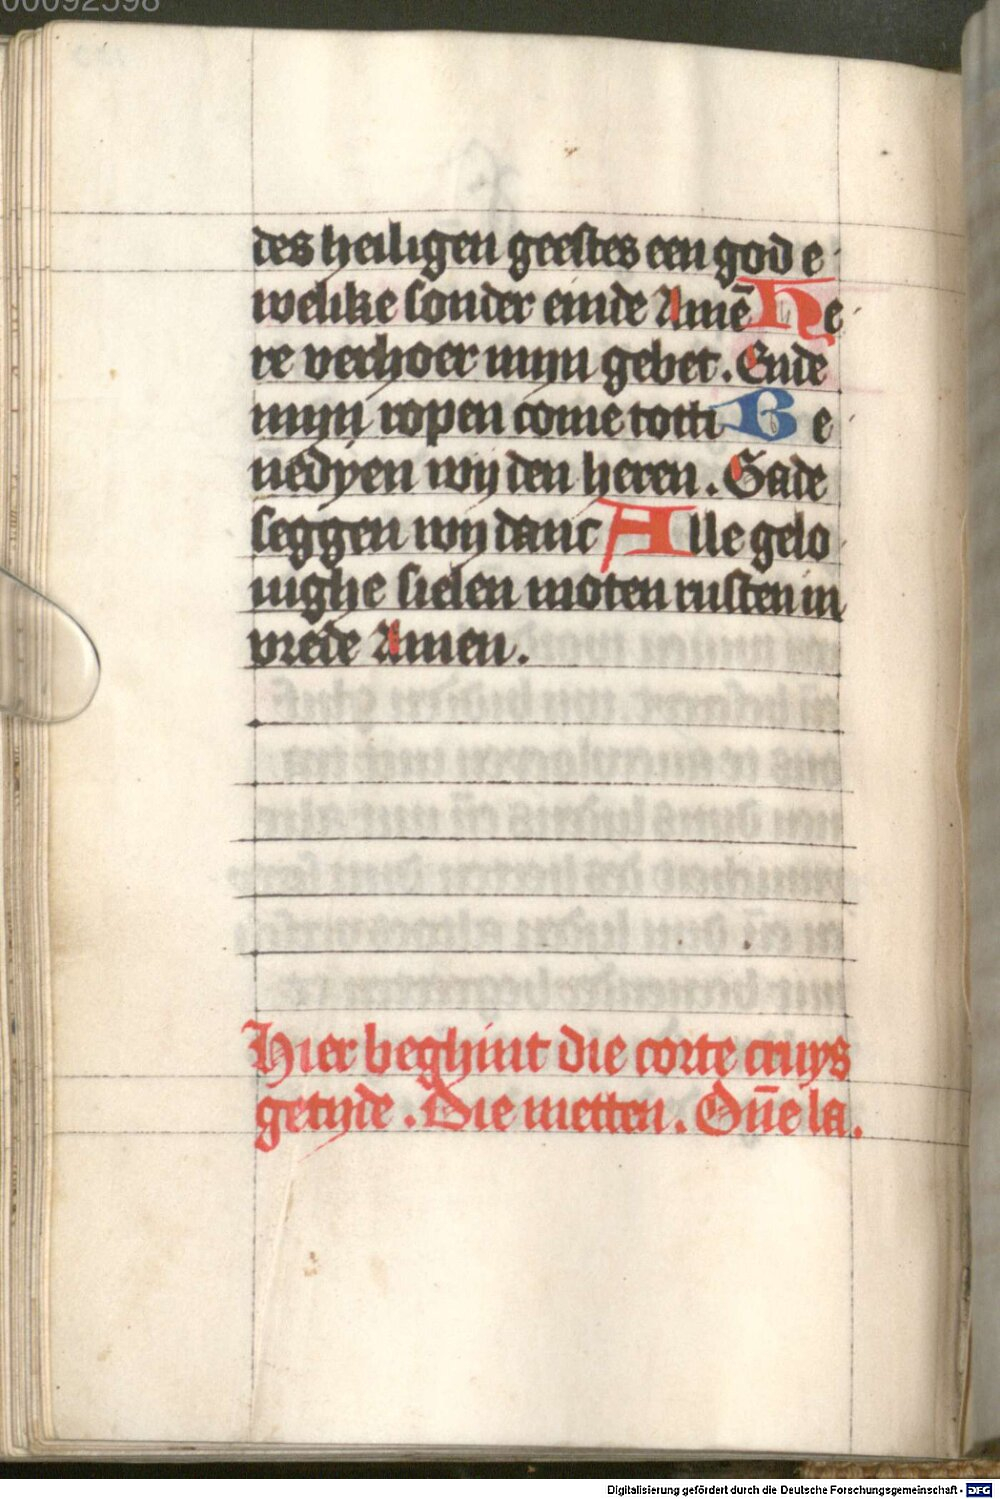 00092598
des heiligen geestes een god e
welike sonder einde Amē He
re verhoer mijn gebet. Ende
mijn ropen come totti Be
nedyen wij den heren. Gade
seggen wij danc Alle gelo
uighe sielen moten rusten in
vrede Amen.
Hier beghint die corte cruys
getyde. Die metten. Dn̄e la.
Digitalisierung gefördert durch die Deutsche Forschungsgemeinschaft - DFG